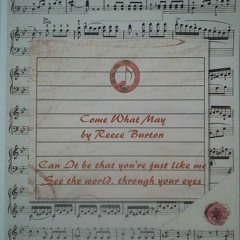 Come What May
by Reece Burton
Can It be that you're just like me
See the world, through your eyes